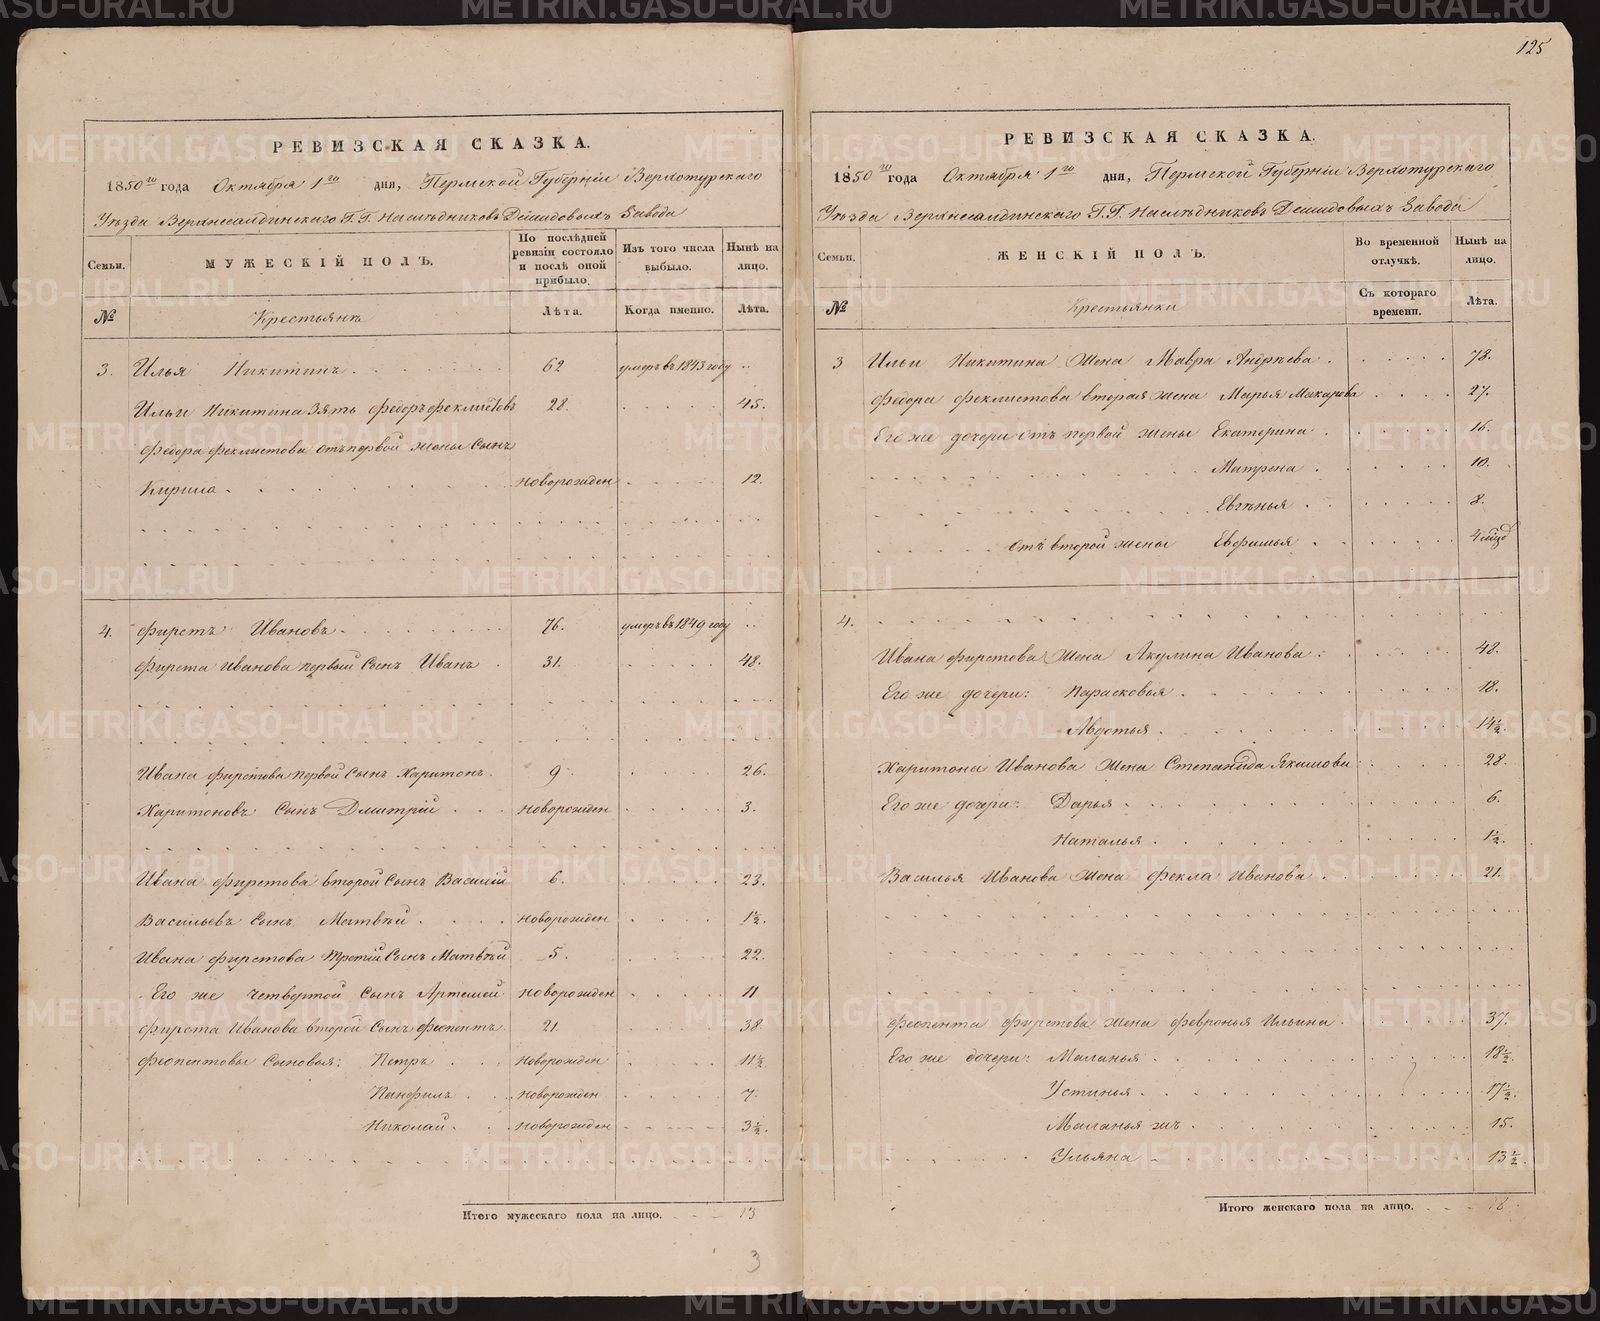 125
РЕВИЗСКАЯ СКАЗКА.
1850го года Октября 1го дня, Пермской Губерніи Верхотурскаго
Уѣзда Верхнесалдинскаго Г.Г. Наслѣдниковъ Демидовыхъ Завода
Семьи. МУЖЕСКІЙ ПОЛЪ. По послѣдней ревизіи состояло и послѣ оной прибыло. Изъ того числа выбыло. Нынѣ на лицо.
№ Крестьянъ Лѣта. Когда именно. Лѣта.
3. Илья Никитинъ 62 умеръ въ 1843 году
Ильи Никитина Зять Федоръ Феклистовъ 28. 45.
Федора Феклистова отъ первой жены Сынъ
Кирила новорожден 12.
4. Фирстъ Ивановъ 76. умеръ въ 1849 году
Фирста Иванова первый Сынъ Иванъ 31. 48.
Ивана Фирстова первой Сынъ Харитонъ 9 26.
Харитоновъ Сынъ Дмитрій новорожден 3.
Ивана Фирстова второй Сынъ Василій 6. 23.
Васильевъ Сынъ Матвѣй новорожден 1½.
Ивана Фирстова третій Сынъ Матвѣй 5. 22.
Его же четвертой Сынъ Артемей новорожден 11
Фирста Иванова второй Сынъ Фюпентъ 21. 38.
Фюпентовы Сыновья: Петръ новорожден 11½.
Панфилъ новорожден 7.
Николай новорожден 3½.
Итого мужескаго пола на лицо. 13
3
РЕВИЗСКАЯ СКАЗКА.
1850го года Октября 1го дня, Пермской Губерніи Верхотурскаго
Уѣзда Верхнесалдинскаго Г.Г. Наслѣдниковъ Демидовыхъ Завода
Семьи. ЖЕНСКІЙ ПОЛЪ. Во временной отлучкѣ. Нынѣ на лицо.
№ Крестьянки Съ котораго времени. Лѣта.
3 Ильи Никитина Жена Мавра Андрѣева 78.
Федора Феклистова вторая жена Марья Макарова 27.
Его же дочери отъ первой жены Екатерина 16.
Матрена 10.
Евгѣнья 8.
Отъ второй жены Евфимья
4.
Ивана Фирстова Жена Акулина Иванова 48.
Его же дочери: Парасковья 18.
Авдотья 14½.
Харитона Иванова Жена Степанида Якимова 28.
Его же дочери: Дарья 6.
Наталья 1½.
Василья Иванова Жена Фекла Иванова 21.
Фюпента Фирстова жена Февронья Ильина 37.
Его же дочери: Маланья 18½.
Устинья 17½.
Маланья жъ 15.
Ульяна 13½.
Итого женскаго пола на лицо. 18
METRIKI.GASO-URAL.RU